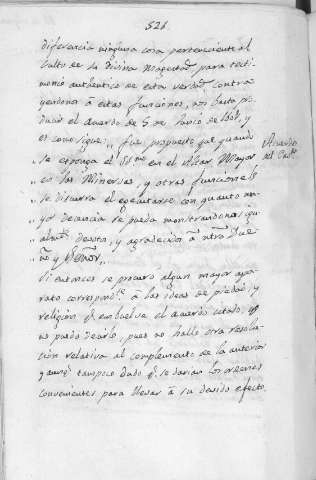 521.
diferencia ninguna cosa perteneciente al
Culto de su Divina Magestad, para testi-
monio authentico de esta verdad, contra
yendonos à estas funciones, nos basta pro-
ducir el acuerdo de 5 de Junio de y
es como sigue: " fue propuesto que quando
Acuerdo
del Cavdo.
" se exponga el SSmo. en el Altar Mayor
" en las Minervas, y otras funciones
" se discurra el egecutarse con quanto ma-
" yor decencia se pueda monstrandonos igu-
" almte. devotos, y agradecidos à ntro. Due-
" ño y Señor.
Si entonces se procuro algun mayor apa-
rato correspondte. à las ideas de piedad, y
religion qe. embuelve el acuerdo citado,
es puedo decirlo, pues no hallo otra resolu-
cion relativa al complemento de la anterior
y aunqe. tampoco dudo qe. se darian los ordenes
convenientes para llevar à su devido efecto